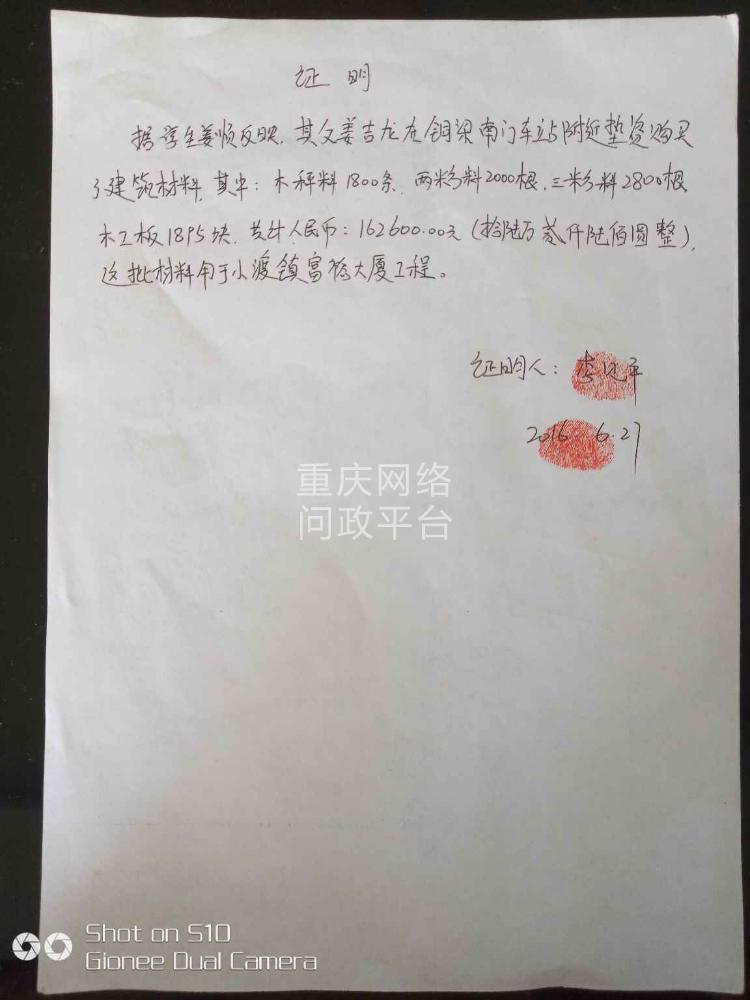 证明
据学生姜顺反映,其父姜吉龙在铜梁南门车站附近垫资购买
了建筑材料,其中:木秤料1800条,两米分料2000根,三米分料2800根
木工板1895块,共计人民币:162600.00元(拾陆万贰仟陆佰圆整),
这批材料用于小渡镇富 大厦工程。
证明人:李 平
2016.6.27
重庆网络
问政平台
Shot on S10
Gionee Dual Camera